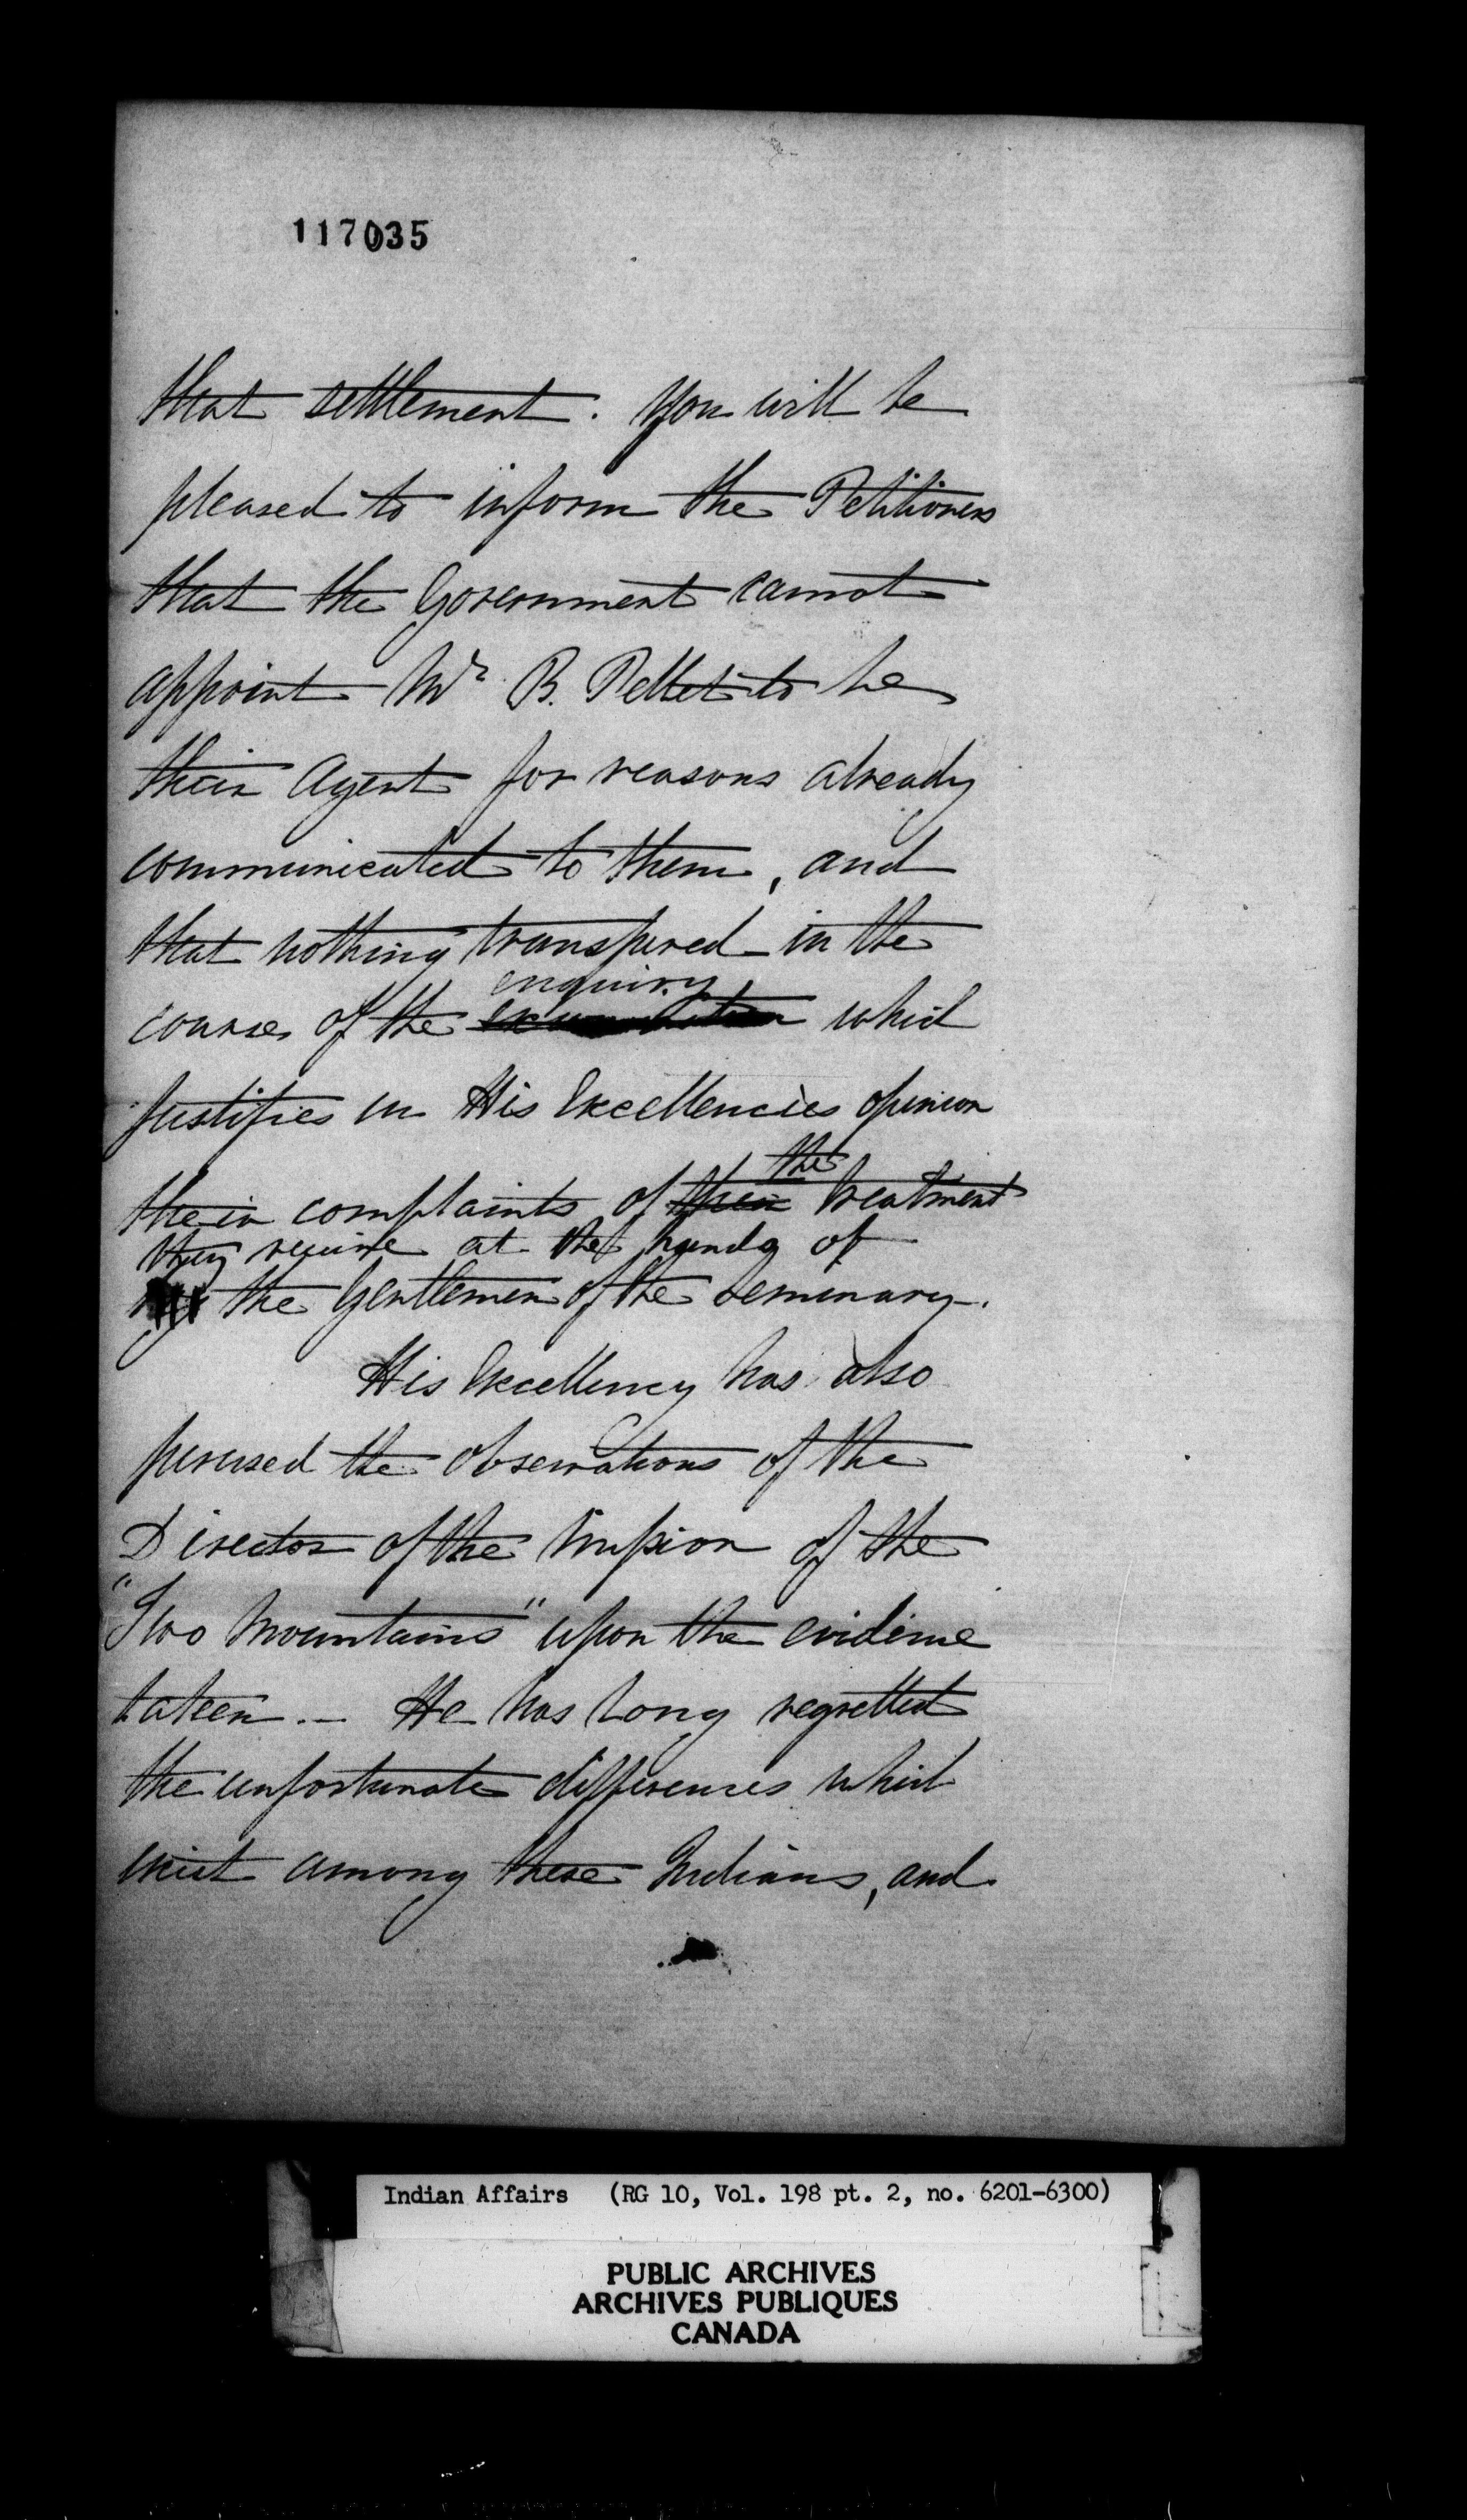 117035
that settlement. You will be
pleased to inform the Petitioners
that the Government cannot
appoint Mr B. Pellet to be
their Agent for reasons already
communicated to them, and
that nothing transpired in the
enquiry
course of the examination which
justifies in His Excellencies opinion
the
their complaints of their treatment
they receive at the hands of
by the Gentlemen of the Seminary.
His Excellency has also
perused the observations of the
Director of the Mission of the
"Two Mountains" upon the evidence
taken. — He has long regretted
the unfortunate differences which
exist among these Indians, and
Indian Affairs (RG 10, Vol. 198 pt. 2, no. 6201-6300)
PUBLIC ARCHIVES
ARCHIVES PUBLIQUES
CANADA